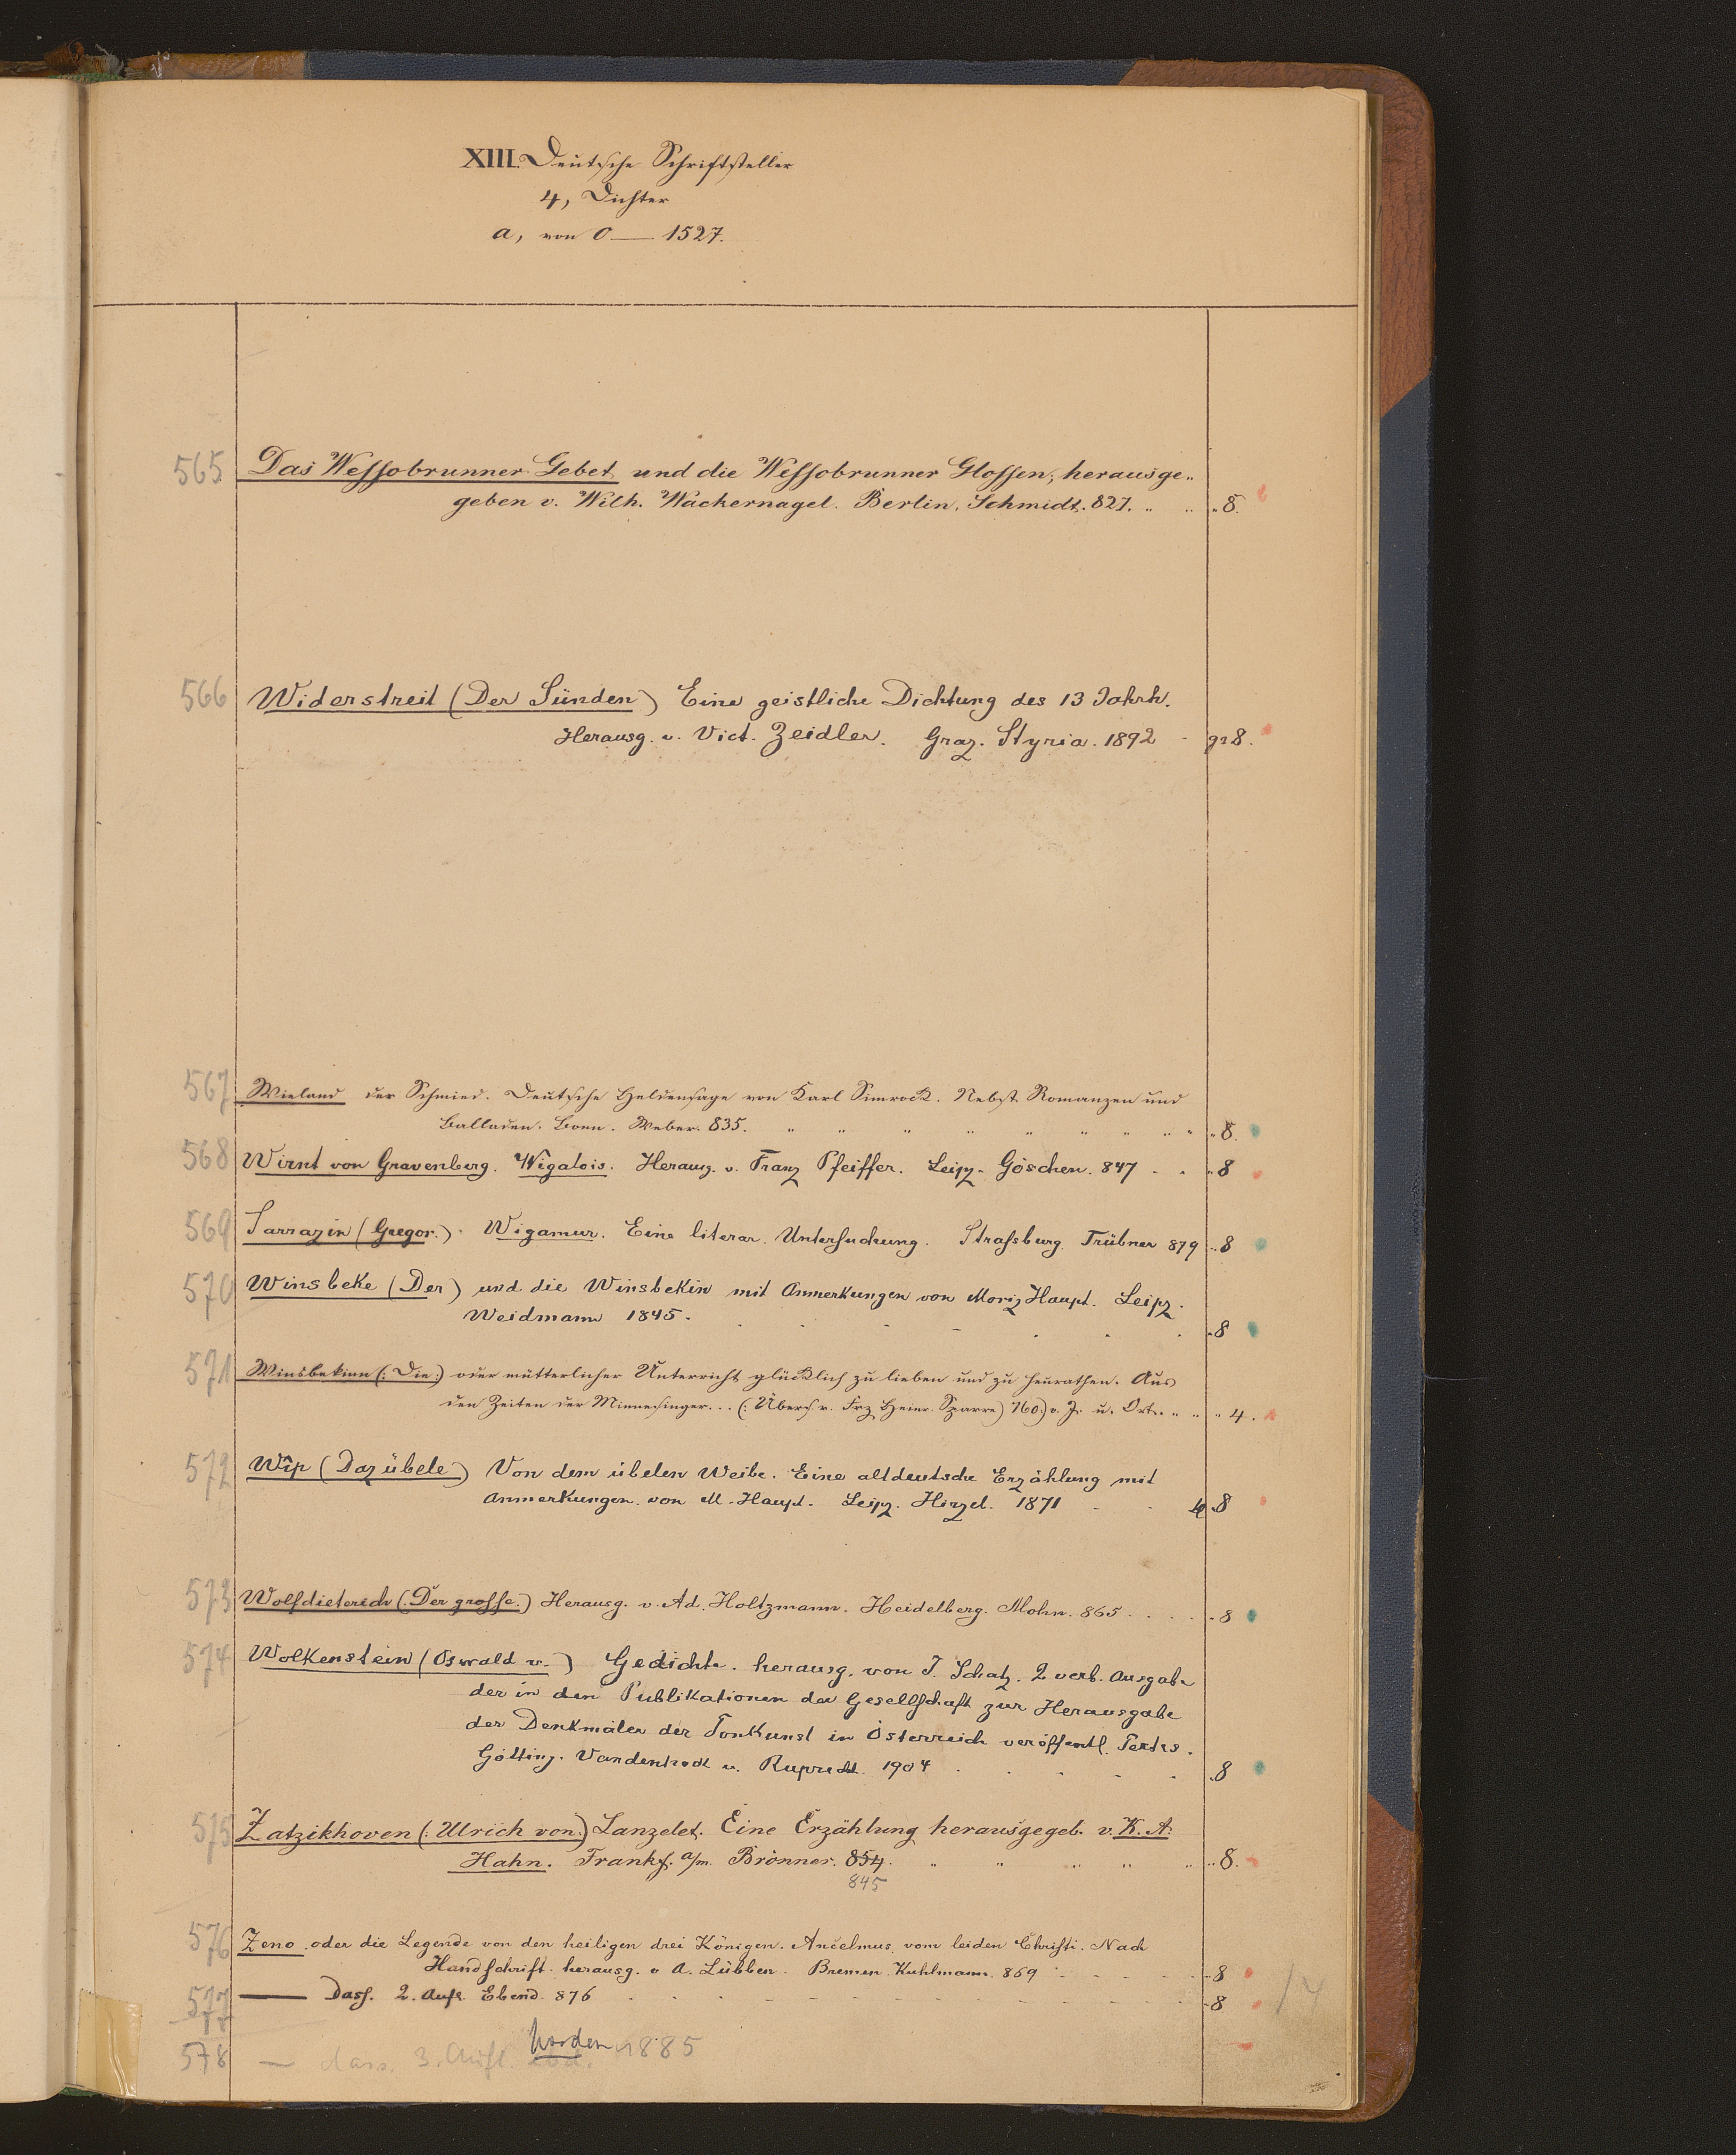 XIII. Deutsche Schriftsteller
4, Dichter
a, von 0 — 1527.
565 Das Wessobrunner Gebet und die Wessobrunner Glossen, herausge„
geben v. Wilh. Wackernagel. Berlin, Schmidt. 827. „ „ „ 8.
566 Widerstreit (Der Sünden) Eine geistliche Dichtung des 13 Jahrh.
Herausg. v. Vict. Zeidler. Graz. Styria. 1892 - gr 8.
567 Wieland der Schmied. Deutsche Heldensage von Karl Simrock. Nebst Romanzen und
Balladen. Bonn. Weber. 835. „ „ „ „ „ „ „ „ „ „ 8.
568 Wirnt von Gravenberg. Wigalois. Herausg. v. Franz Pfeiffer. Leipz. Göschen. 847 - „ „ 8
569 Sarrazin (Gregor.) Wigamur. Eine literar. Untersuchung. Strassburg. Trübner 879 „ 8
570 Winsbeke (Der) und die Winsbekin mit Anmerkungen von Moriz Haupt. Leipz.
Weidmann 1845. „ 8
571 Winsbekinn (: Die :) oder mütterlicher Unterricht glücklich zu lieben und zu heurathen. Aus
den Zeiten der Minnesinger... (: Übers. v. Frz Heinr. Sparre) 760) v. J. u. Ort. „ „ „ 4.
572 Wîp (Daz übele) Von dem übelen Weibe. Eine altdeutsche Erzählung mit
Anmerkungen von M. Haupt. Leipz. Hirzel. 1871 - - 8
573 Wolfdieterich (: Der grosse.) Herausg. v. Ad. Holtzmann. Heidelberg. Mohr. 865 . . . . 8
574 Wolkenstein (Oswald v.) Gedichte. herausg. von J. Schatz. 2 verb. Ausgabe
der in den Publikationen der Gesellschaft zur Herausgabe
der Denkmäler der Tonkunst in Österreich veröffentl. Textes.
Götting. Vandenhoek u. Ruprecht. 1904 . . . . . 8
575 Zatzikhoven (: Ulrich von) Lanzelet. Eine Erzählung herausgegeb. v. K. A.
Hahn. Frankf. a/m. Brönner. 854. „ „ „ „ „ „ 8.
845
576 Zeno oder die Legende von den heiligen drei Königen. Ancelmus vom leiden Christi. Nach
Handschrift. herausg. v A. Lübben. Bremen. Kuhtmann. 869 - - - - 8
577 — Dass. 2. Aufl. Ebend. 876 - - - - - 8 14
578 — dass. 3. Aufl. Norden 1885